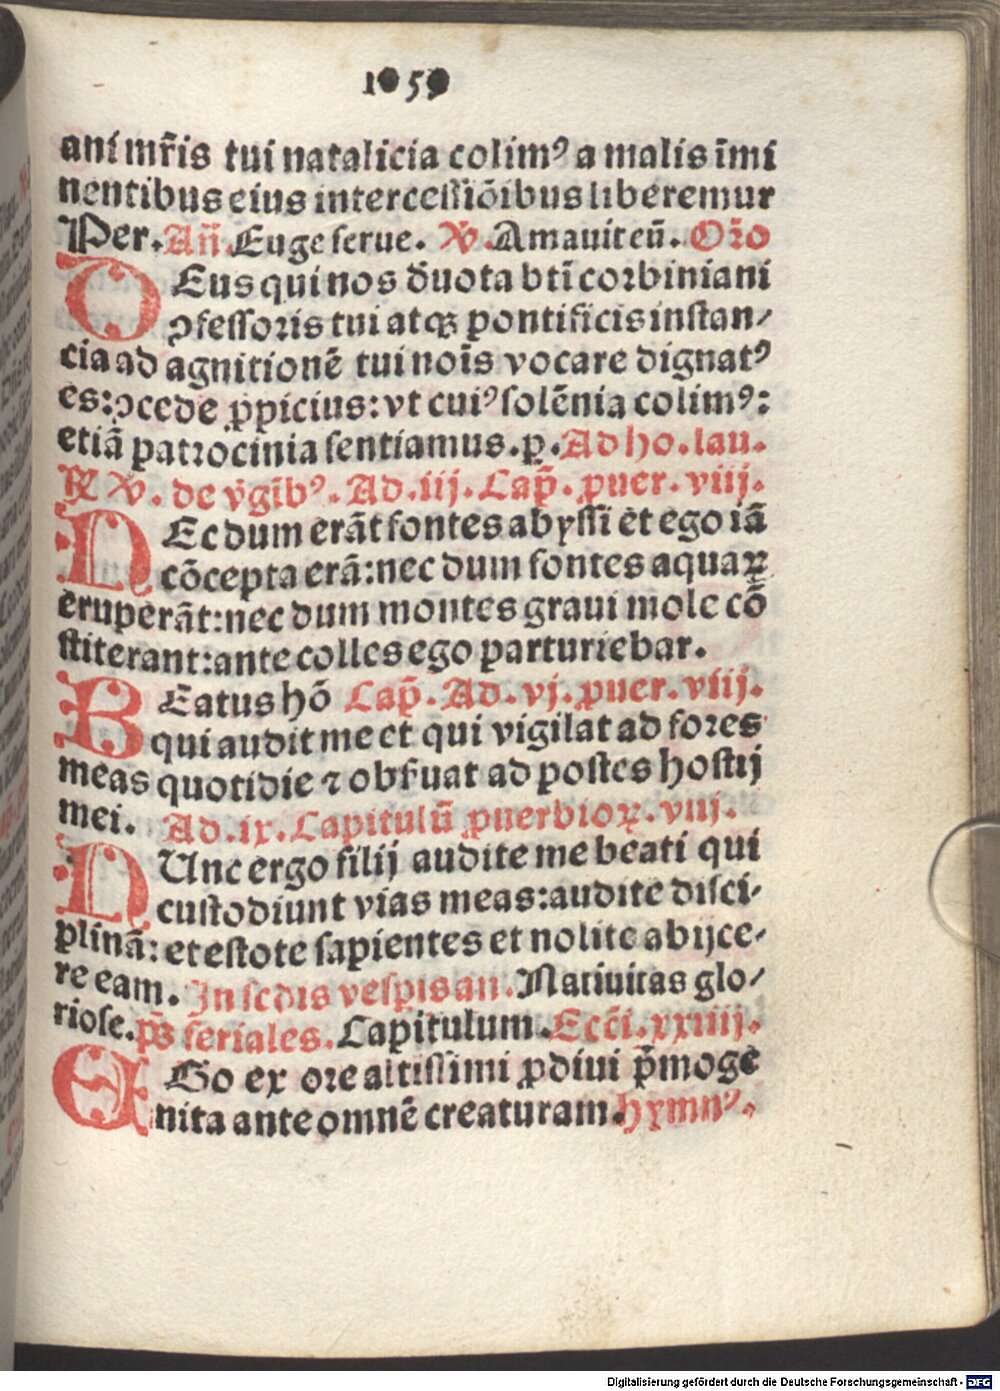 1059
ani mr̄is tui natalicia colimꝰ a malis īmi
nentibus eius intercessiōibus liberemur
Per. An̄. Euge serue. ℣. Amauit eū. Or̄o
DEus qui nos d̄uota bt̄i corbiniani
ↄfessoris tui atqꝫ pontificis instan⸗
cia ad agnitionē tui nois̄ vocare dignatꝰ
es: ↄcede ꝓpicius: vt cuiꝰ solēnia colimꝰ:
etiā patrocinia sentiamus. ꝑ. Ad ho. lau.
℟ ℣. de v̄gībꝰ. Ad .iij. Cap̄. ꝓuer. viij.
NEcdum erāt fontes abyssi et ego iā
cōcepta erā: necdum fontes aquaꝝ
eruperāt: necdum montes graui mole cō
stiterant: ante colles ego parturiebar.
BEatus hō Cap̄. Ad. vj. ꝓuer. viij.
qui audit me et qui vigilat ad fores
meas quotidie ⁊ obs̄uat ad postes hostij
mei. Ad .ix. Capitulū ꝓuerbioꝝ. viij.
NUnc ergo filij audite me beati qui
custodiunt vias meas: audite disci⸗
plinā: et estote sapientes et nolite abijce⸗
re eam. In scd̄is vesp̄is an. Natiuitas glo⸗
riose. ps̄ feriales. Capitulum. Ecc̄i. xxiiij.
EGo ex ore altissimi ꝓdiui p̄moge
nita ante omnē creaturam. hymnꝰ.
Digitalisierung gefördert durch die Deutsche Forschungsgemeinschaft - DFG